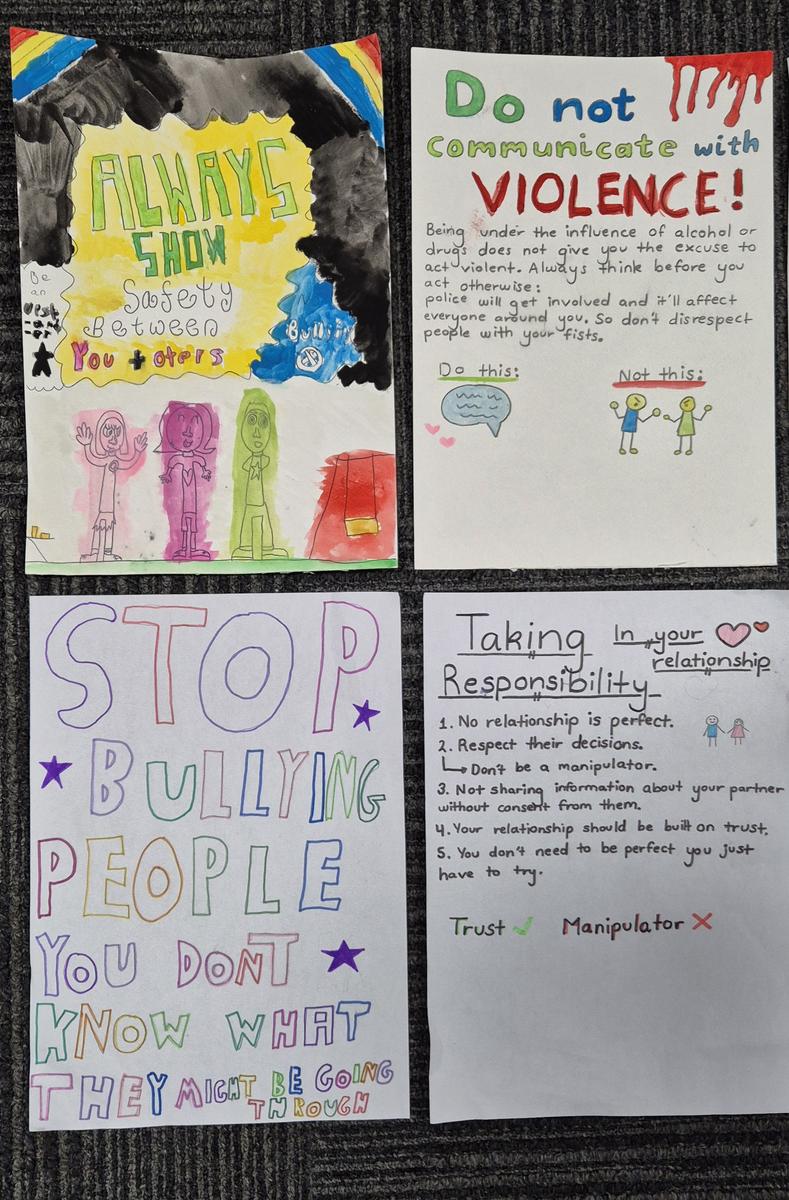 ALWAYS
SHOW
Safety
Between
You + oters
Be
an
Bullying
Do not
communicate with
VIOLENCE!
Being under the influence of alcohol or
drugs does not give you the excuse to
act violent. Always think before you
act otherwise:
police will get involved and it'll affect
everyone around you. So don't disrespect
people with your fists.
Do this:
Not this:
STOP
BULLYING
PEOPLE
YOU DONT
KNOW WHAT
THEY MIGHT BE GOING
THROUGH
Taking In your
relationship
Responsibility
1. No relationship is perfect.
2. Respect their decisions.
↳ Don't be a manipulator.
3. Not sharing information about your partner
without consent from them.
4. Your relationship should be built on trust.
5. You don't need to be perfect you just
have to try.
Trust ✓ Manipulator ✗